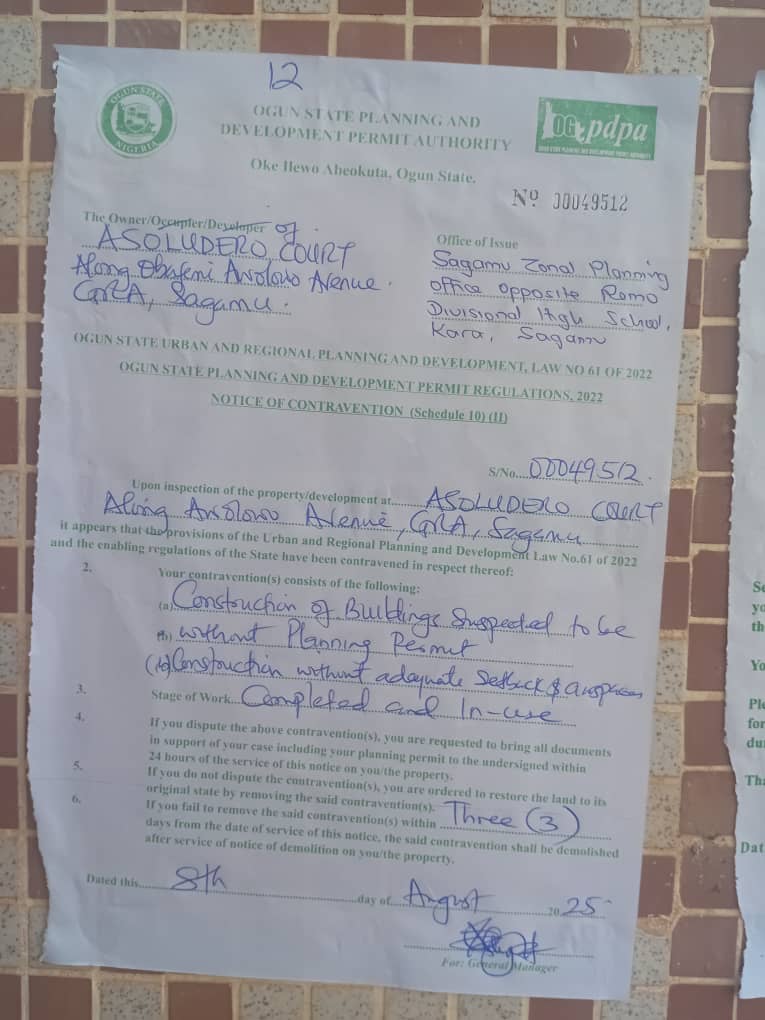 12
OGUN STATE
NIGERIA
OGUN STATE PLANNING AND
DEVELOPMENT PERMIT AUTHORITY
OGpdpa
Oke Ilewo Abeokuta, Ogun State.
Nº 00049512
The Owner/Occupier/Developer of
ASOLUDERO COURT
Along Obafemi Awolowo Avenue.
GRA, Sagamu.
Office of Issue
Sagamu Zonal Planning
office opposite Remo
Divisional High School,
Kara, Sagamu
OGUN STATE URBAN AND REGIONAL PLANNING AND DEVELOPMENT, LAW NO 61 OF 2022
OGUN STATE PLANNING AND DEVELOPMENT PERMIT REGULATIONS, 2022
NOTICE OF CONTRAVENTION (Schedule 10) (II)
S/No...00049512.
Upon inspection of the property/development at ASOLUDERO COURT
Along Awolowo Avenue, GRA, Sagamu
it appears that the provisions of the Urban and Regional Planning and Development Law No.61 of 2022
and the enabling regulations of the State have been contravened in respect thereof:
2. Your contravention(s) consists of the following:
(a) Construction of Buildings Suspected to be
(b) without Planning Permit
(b) Construction without adequate Setback &
3. Stage of Work... Completed and In-use
4. If you dispute the above contravention(s), you are requested to bring all documents
in support of your case including your planning permit to the undersigned within
24 hours of the service of this notice on you/the property.
5. If you do not dispute the contravention(s), you are ordered to restore the land to its
original state by removing the said contravention(s).
6. If you fail to remove the said contravention(s) within Three (3)
days from the date of service of this notice, the said contravention shall be demolished
after service of notice of demolition on you/the property.
Dated this 8th day of August 2025
For: General Manager
Se
yo
th
Yo
Ple
for
du
Tha
Dat